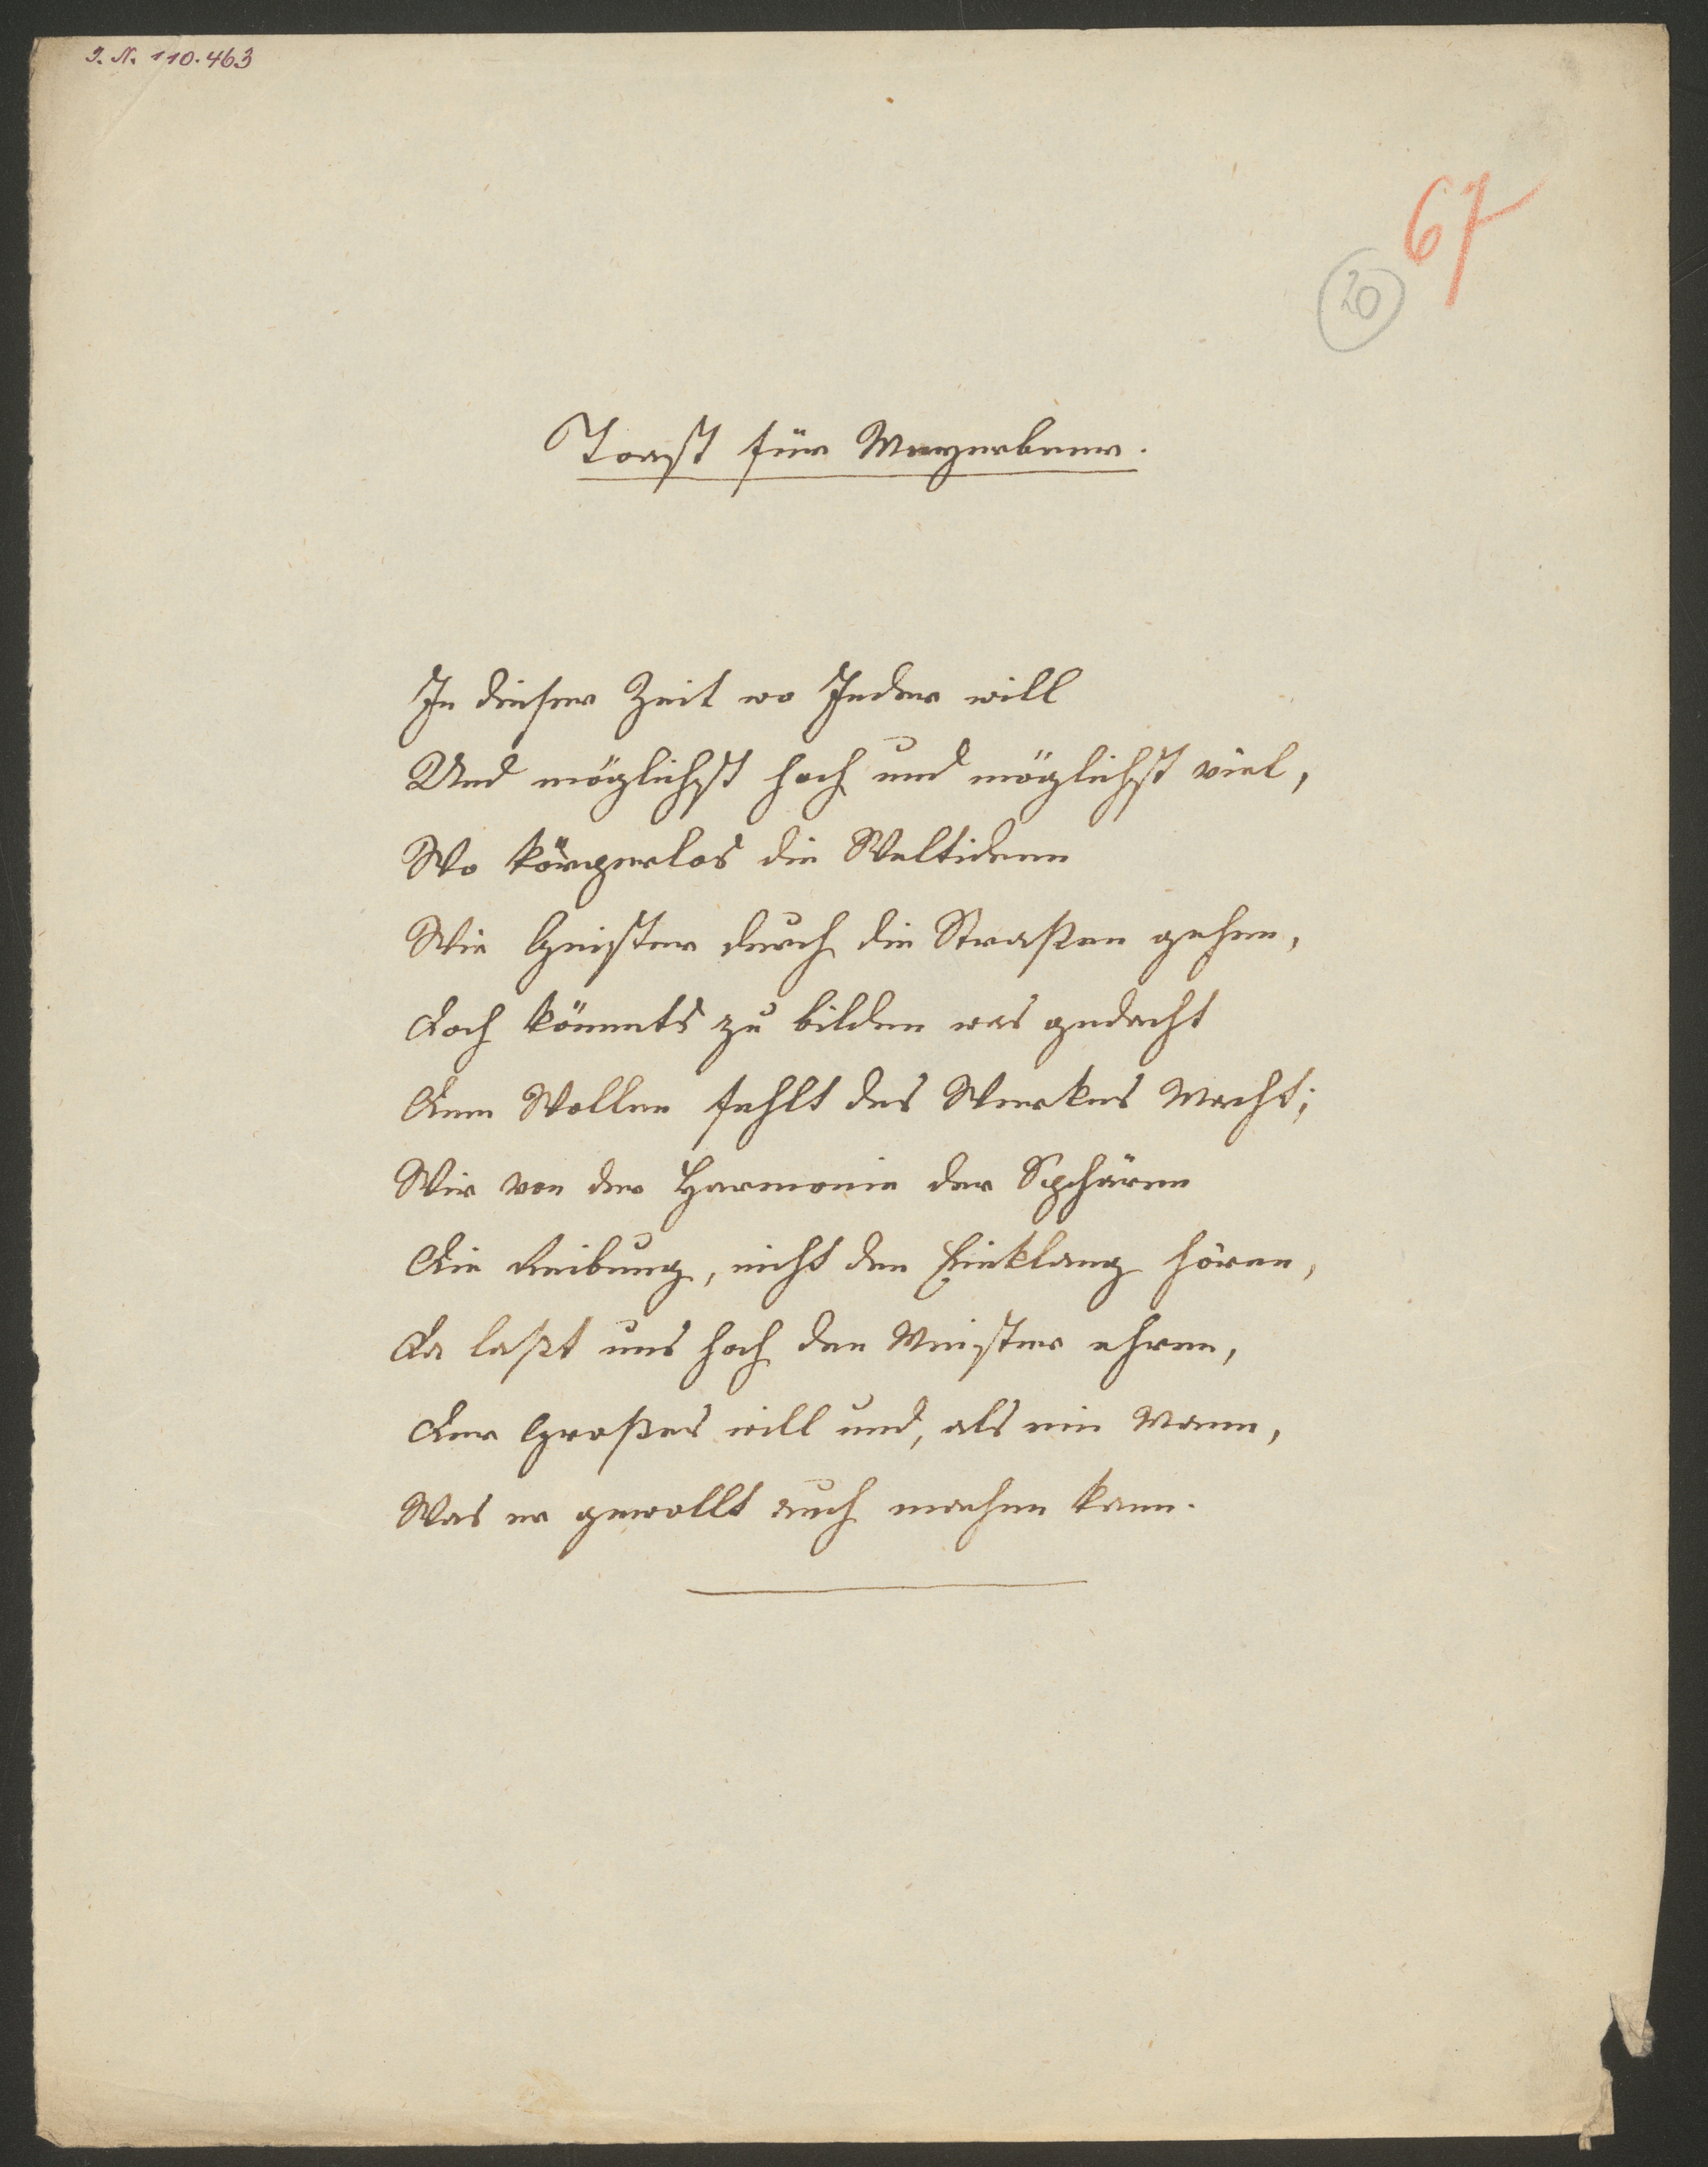 I. N. 110.463
67
20
Toast für Meyerbeer.
In dieser Zeit wo Jeder will
Und möglichst hoch und möglichst viel,
Wo körperlos die Weltideen
Wie Geister durch die Straßen gehen,
Doch kömmts zu bilden was gedacht
Dem Wollen fehlt des Werkes Macht;
Wir von der Harmonie der Sphären
Die Reibung, nicht den Einklang hören,
Da laßt uns hoch den Meister ehren,
Der Großes will und, als ein Mann,
Was er gewollt auch machen kann.